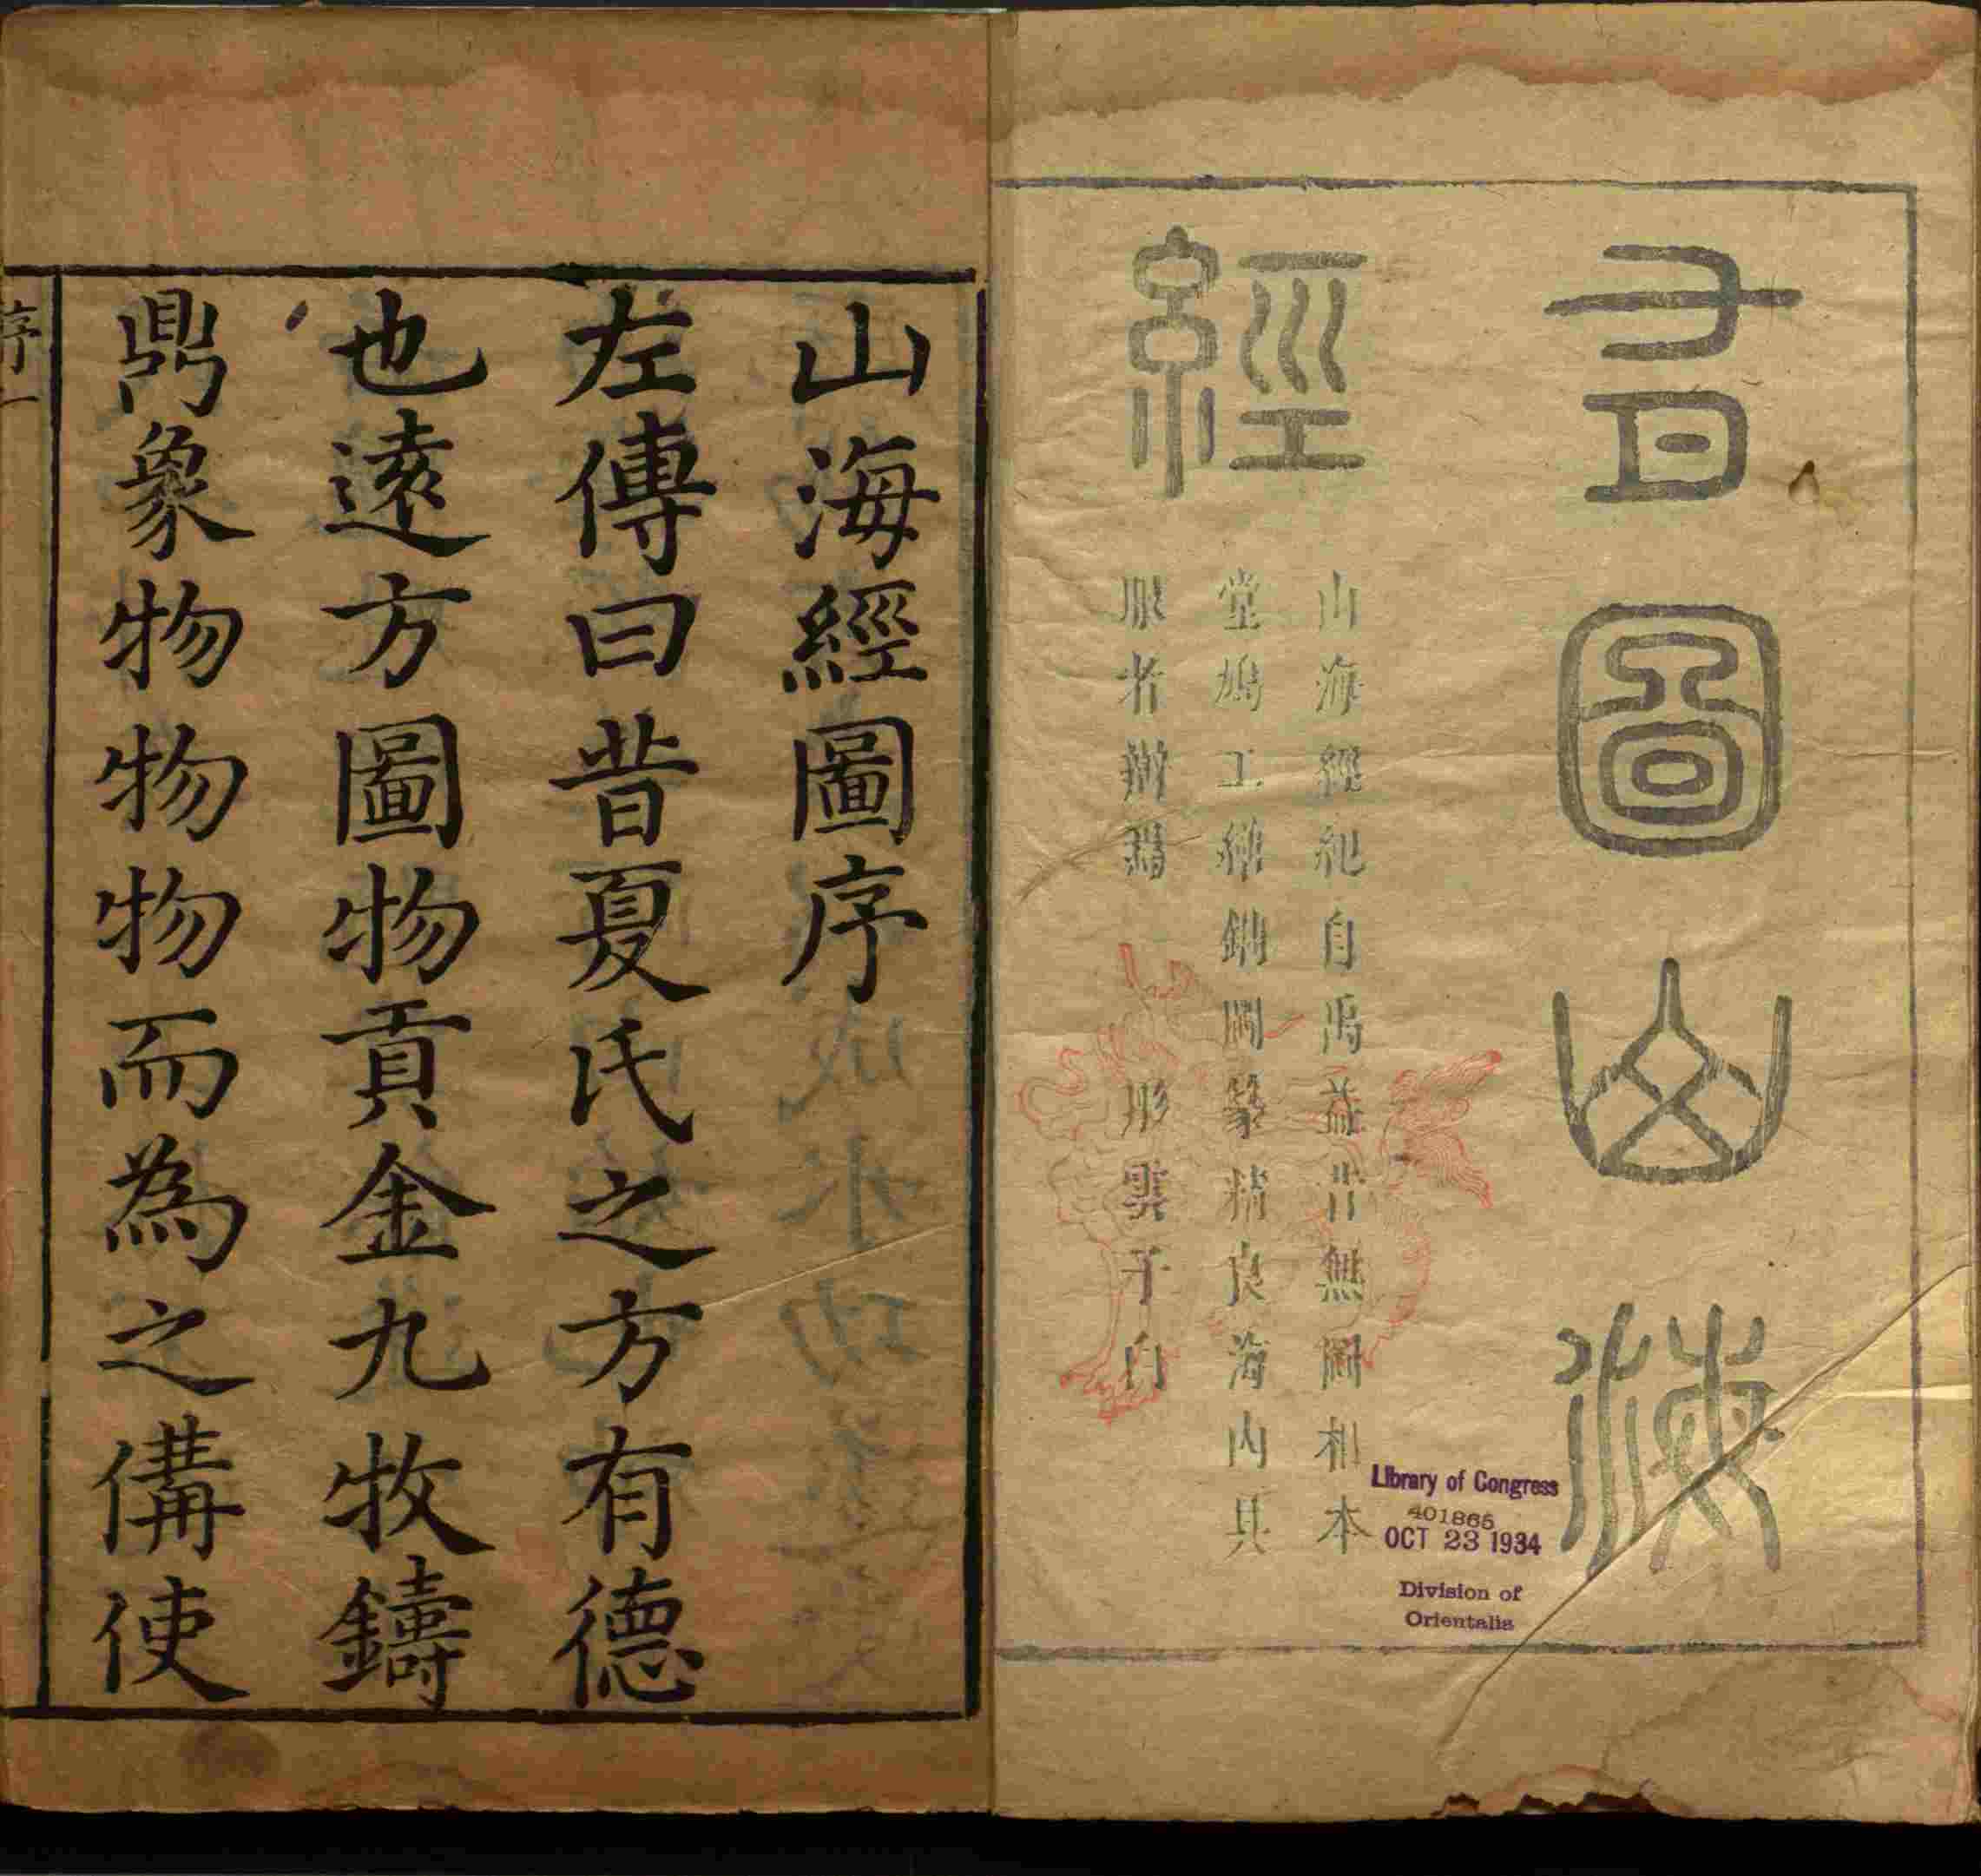 有圖山海
經
山海經紀自禹益昔無圖相本
堂鳩工繪圖篆精良海內具
眼者辨
形雲子白
Library of Congress
401865
OCT 23 1934
Division of
Orientalia
山海經圖序
左傳曰昔夏氏之方有德
也遠方圖物貢金九牧鑄
鼎象物物物而為之備使
序一